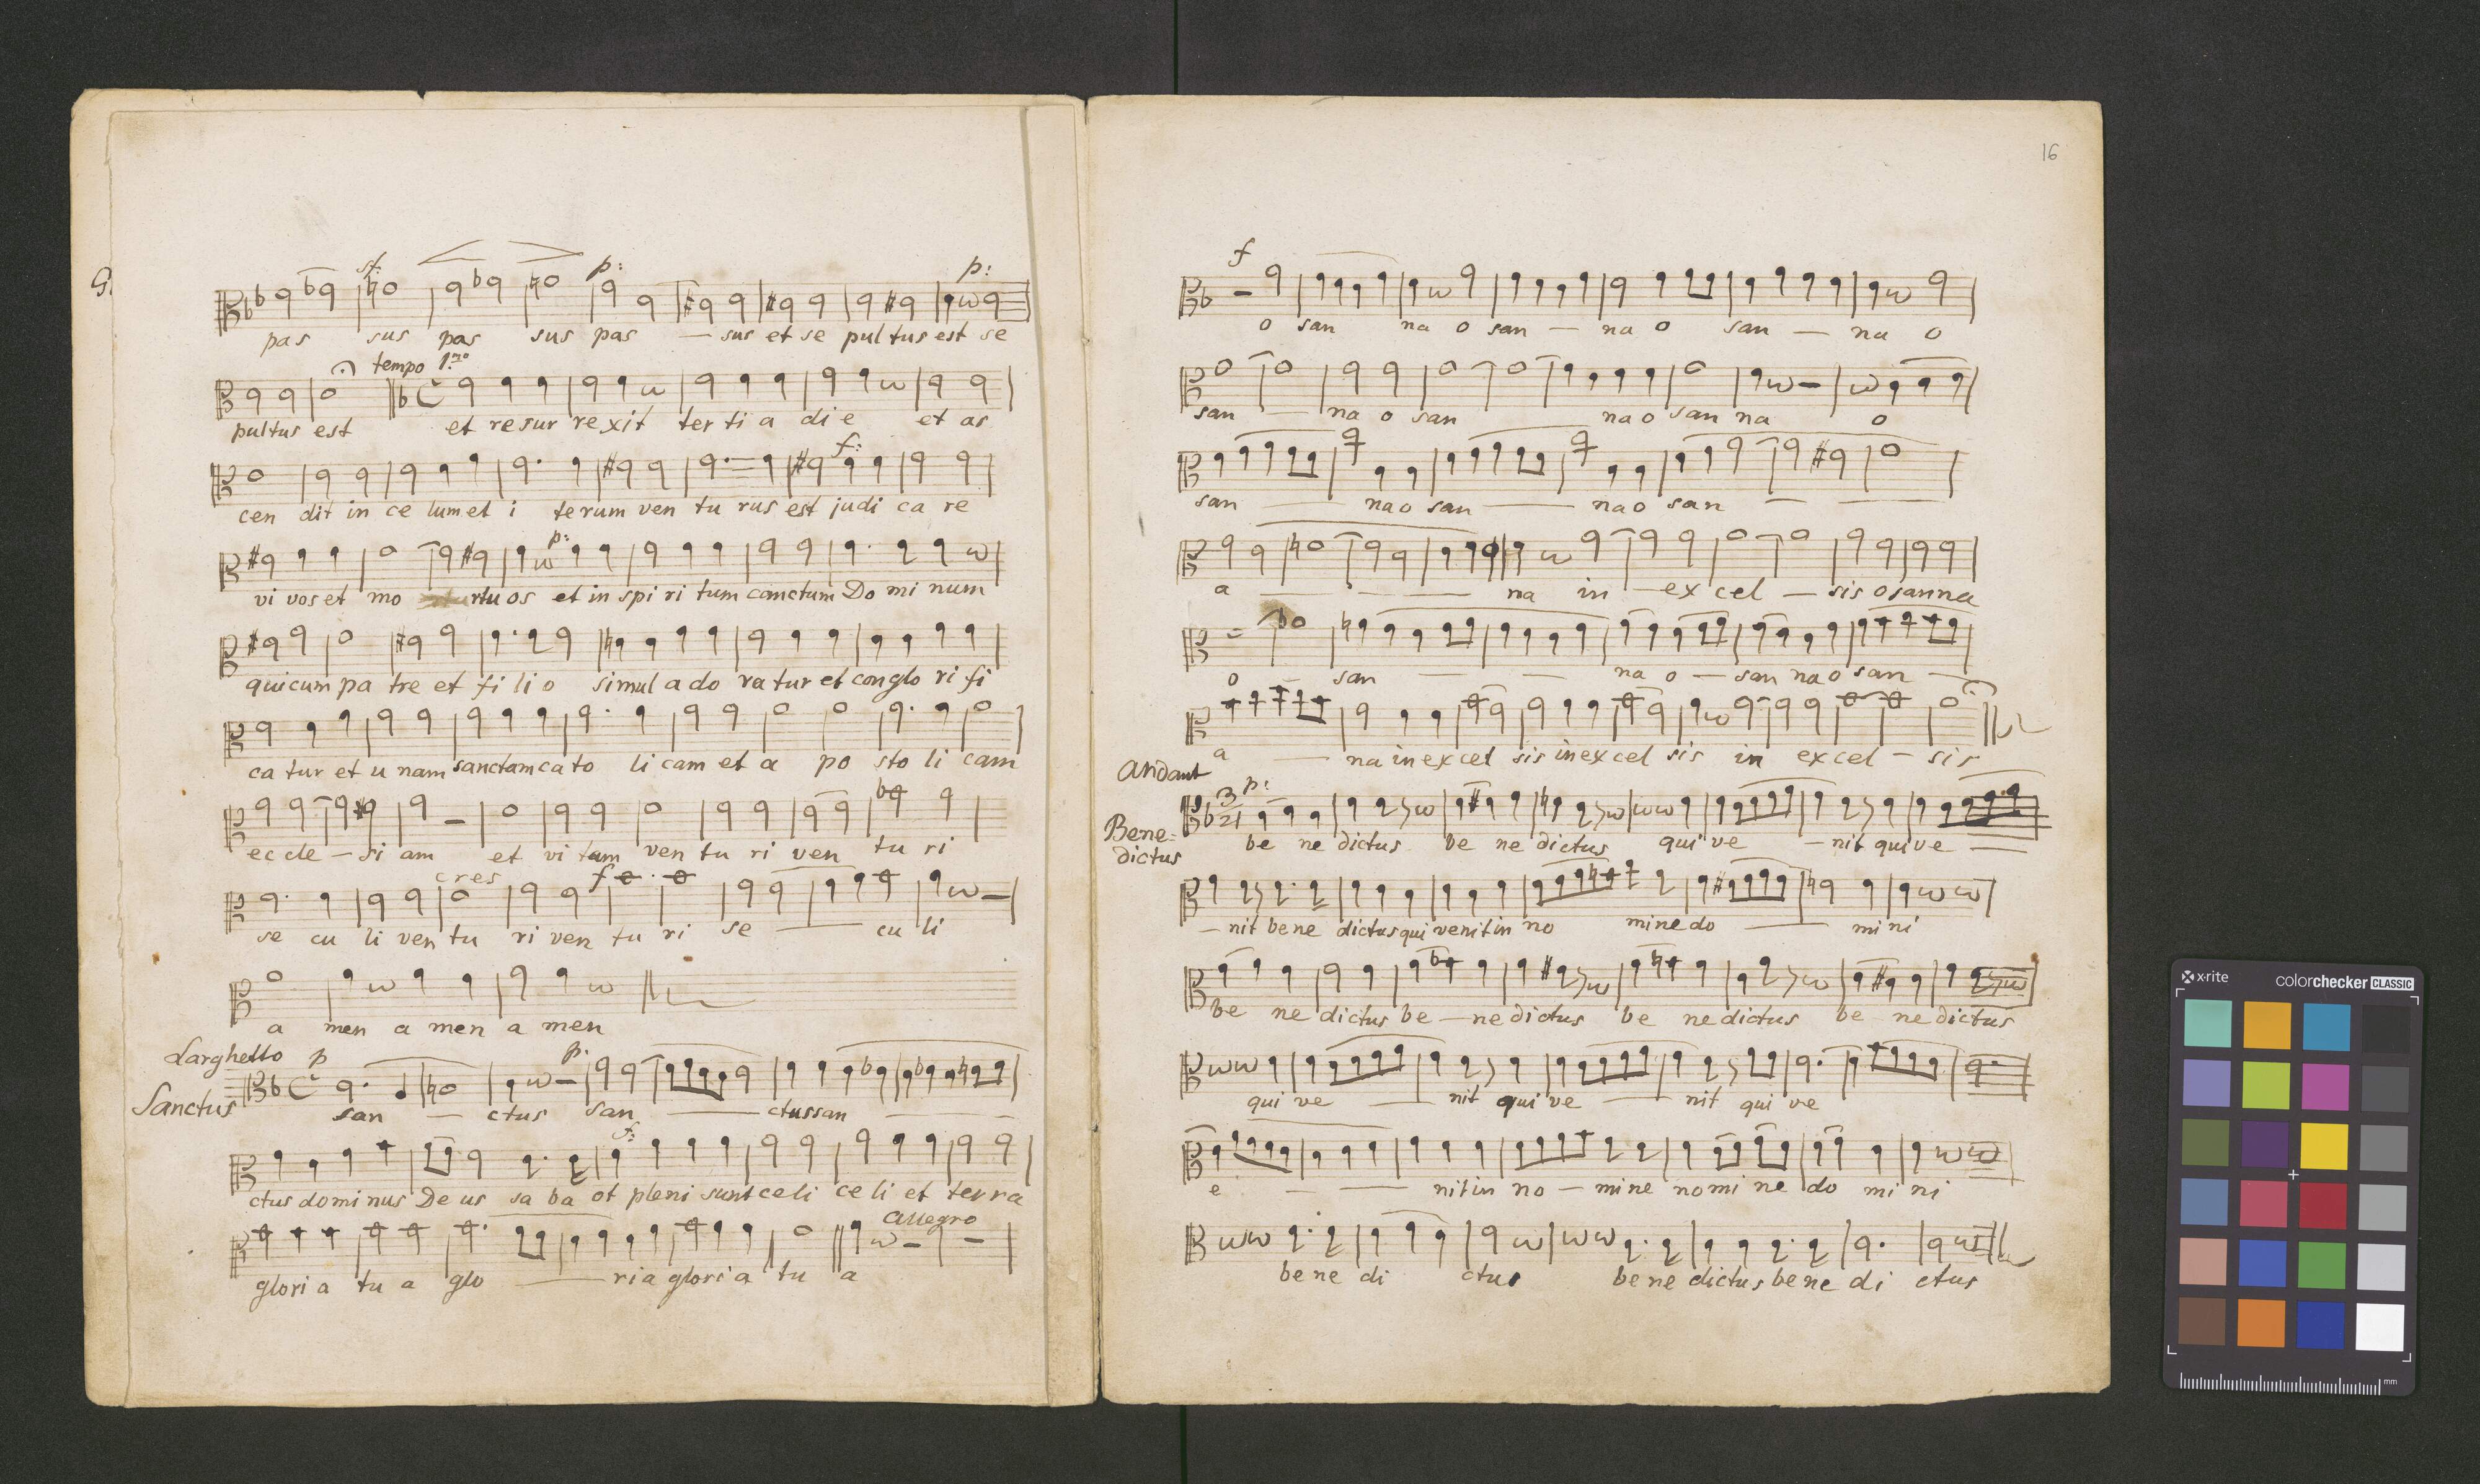 G.
sf. p: p:
pas sus pas sus pas — sus et se pul tus est se
tempo 1mo
pultus est et resur rexit ter ti a di e et as
f:
cen dit in ce lum et i terum ven tu rus est judi ca re
p:
vi vos et mo rtu os et in spi ri tum sanctum Do mi num
qui cum pa tre et fi li o simul a do ra tur et con glo ri fi
ca tur et u nam sanctam ca to li cam et a po sto li cam
ec cle — si am et vi tam ven tu ri ven tu ri
cres f
se cu li ven tu ri ven tu ri se — cu li
a men a men a men
Larghetto p p.
Sanctus san — ctus san — ctus san — —
f:
ctus do mi nus De us sa ba ot pleni sunt celi ce li et terra
allegro
glori a tu a glo — ria glori a tu a
16
f
o san na o san — na o san — na o
san — na o san na o san na o
san — na o san — na o san — —
a — — — na in — ex cel — sis o sanna
o — san — — na o — san na o san —
a — na in ex cel sis in ex cel sis in ex cel — sis
Andant
p:
3
21
Bene=
dictus
be ne dictus be ne dictus qui ve — nit qui ve —
— nit bene dictus qui venit in no mine do — mi ni
be ne dictus be — ne dictus be ne dictus be ne dictus
qui ve — nit qui ve — nit qui ve
e — — nit in no — mi ne no mi ne do mi ni
be ne di ctus be ne dictus be ne di ctus
x-rite
colorchecker CLASSIC
mm